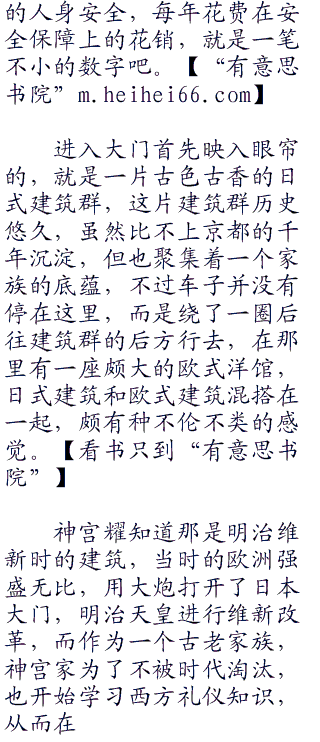 的人身安全，每年花费在安
全保障上的花销，就是一笔
不小的数字吧。【“有意思
书院”m.heihei66.com】
进入大门首先映入眼帘
的，就是一片古色古香的日
式建筑群，这片建筑群历史
悠久，虽然比不上京都的千
年沉淀，但也聚集着一个家
族的底蕴，不过车子并没有
停在这里，而是绕了一圈后
往建筑群的后方行去，在那
里有一座颇大的欧式洋馆，
日式建筑和欧式建筑混搭在
一起，颇有种不伦不类的感
觉。【看书只到“有意思书
院”】
神宫耀知道那是明治维
新时的建筑，当时的欧洲强
盛无比，用大炮打开了日本
大门，明治天皇进行维新改
革，而作为一个古老家族，
神宫家为了不被时代淘汰，
也开始学习西方礼仪知识，
从而在